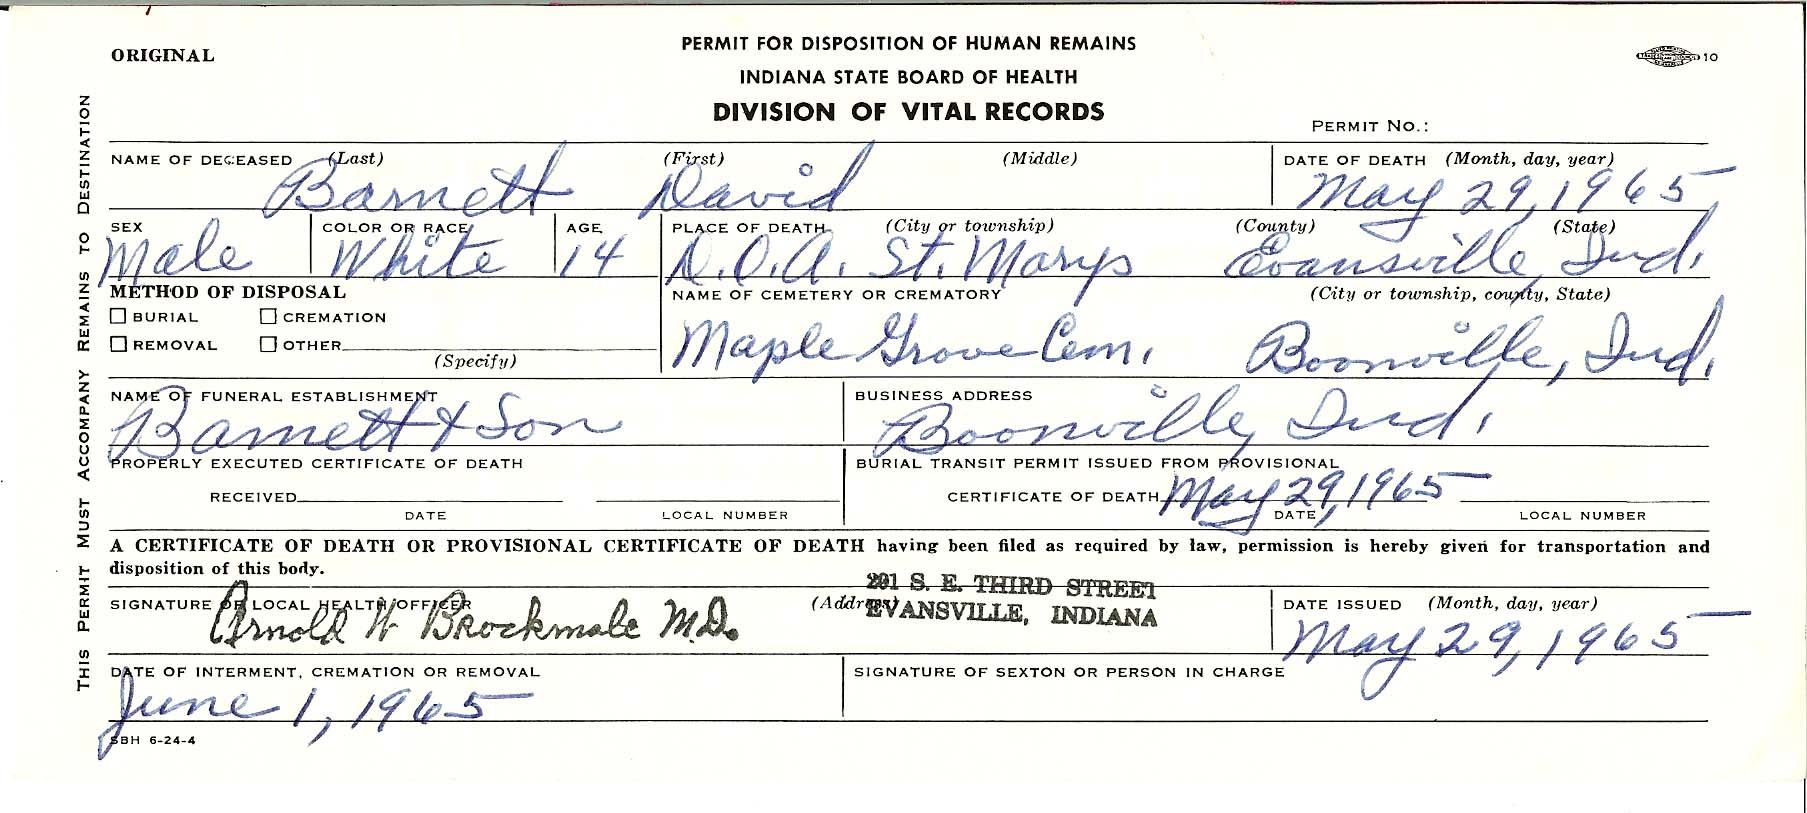 ORIGINAL
PERMIT FOR DISPOSITION OF HUMAN REMAINS
INDIANA STATE BOARD OF HEALTH
DIVISION OF VITAL RECORDS
10
PERMIT NO.:
THIS PERMIT MUST ACCOMPANY REMAINS TO DESTINATION
NAME OF DECEASED (Last) (First) (Middle) DATE OF DEATH (Month, day, year)
Barnett David May 29, 1965
SEX COLOR OR RACE AGE PLACE OF DEATH (City or township) (County) (State)
Male White 14 D.O.A. St. Marys Evansville, Ind.
METHOD OF DISPOSAL NAME OF CEMETERY OR CREMATORY (City or township, county, State)
BURIAL CREMATION
REMOVAL OTHER
(Specify)
Maple Grove Cem. Boonville, Ind.
NAME OF FUNERAL ESTABLISHMENT BUSINESS ADDRESS
Barnett & Son Boonville, Ind.
PROPERLY EXECUTED CERTIFICATE OF DEATH BURIAL TRANSIT PERMIT ISSUED FROM PROVISIONAL
RECEIVED CERTIFICATE OF DEATH May 29, 1965
DATE LOCAL NUMBER DATE LOCAL NUMBER
A CERTIFICATE OF DEATH OR PROVISIONAL CERTIFICATE OF DEATH having been filed as required by law, permission is hereby given for transportation and
disposition of this body.
201 S. E. THIRD STREET
SIGNATURE OF LOCAL HEALTH OFFICER (Address) EVANSVILLE, INDIANA DATE ISSUED (Month, day, year)
Arnold W Brockmole M.D. May 29, 1965
DATE OF INTERMENT, CREMATION OR REMOVAL SIGNATURE OF SEXTON OR PERSON IN CHARGE
June 1, 1965
SBH 6-24-4